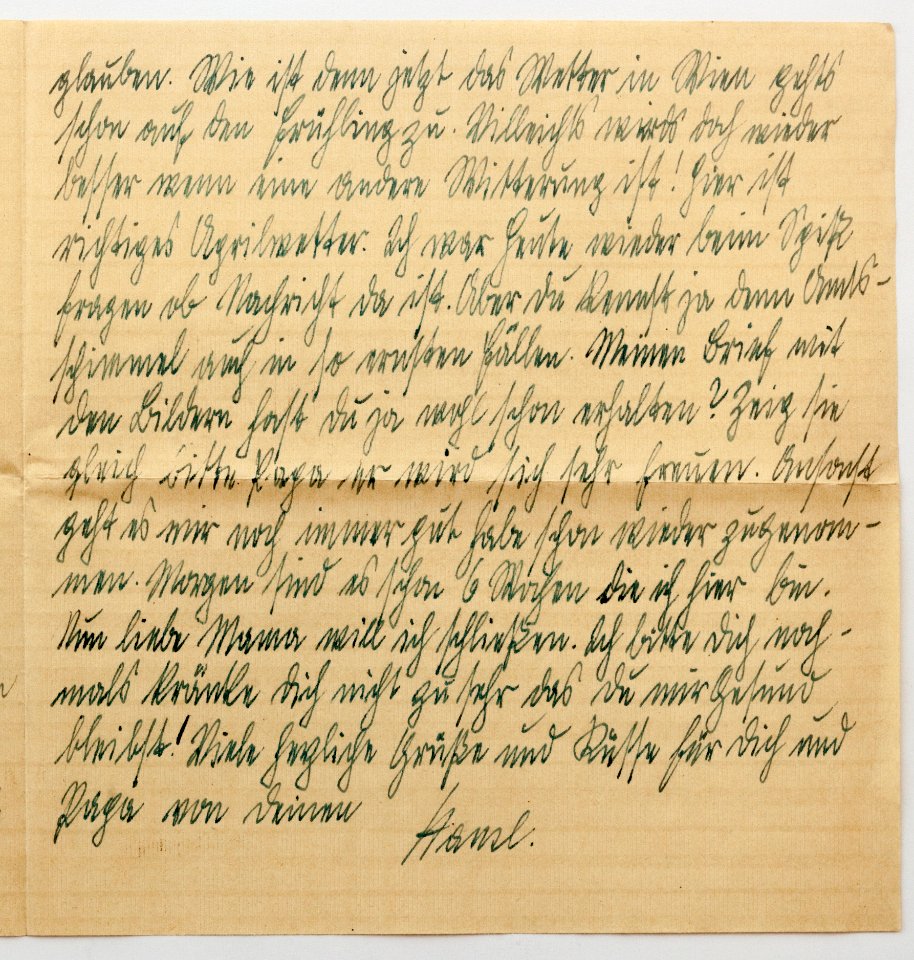 glauben. Wie ist denn jetzt das Wetter in Wien gehts
schon auf den Frühling zu. Villeichts wirds doch wieder
besser wenn eine andere Witterung ist! Hier ist
richtiges Aprilwetter. Ich war heute wieder beim Spiß
fragen ob Nachricht da ist. Aber du kennst ja denn Amts-
schimmel auch in so ernsten Fällen. Meinen Brief mit
den Bildern hast du ja wohl schon erhalten? Zeig sie
gleich bitte Papa er wird sich sehr freuen. Ansonst
geht es mir noch immer gut habe schon wieder zugenom-
men. Morgen sind es schon 6 Wochen die ich hier bin.
Nun liebe Mama will ich schließen. Ich bitte dich noch-
mals kränke dich nicht zu sehr das du mir gesund
bleibst! Viele herzliche Grüße und Küsse für dich und
Papa von deinen
Hansl.